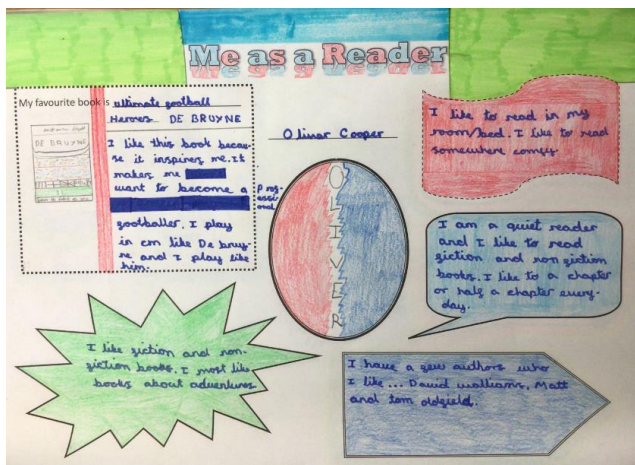 Me as a Reader
My favourite book is ultimate football
Heroes DE BRUYNE
DE BRUYNE
I like this book becau-
se it inspires me. It
makes me
want to become a
prof-
essi-
onal
footballer. I play
in cm like De bruy-
ne and I play like
him.
Olivar Cooper
OLIVER
I like to read in my
room/bed. I like to read
somewhere comfy
I am a quiet reader
and I like to read
fiction and non fiction
books. I like to a chapter
or half a chapter every-
day.
I like fiction and non-
fiction books. I most like
books about adventures
I have a few authors who
I like... David walliams, Matt
and tom oldfield.